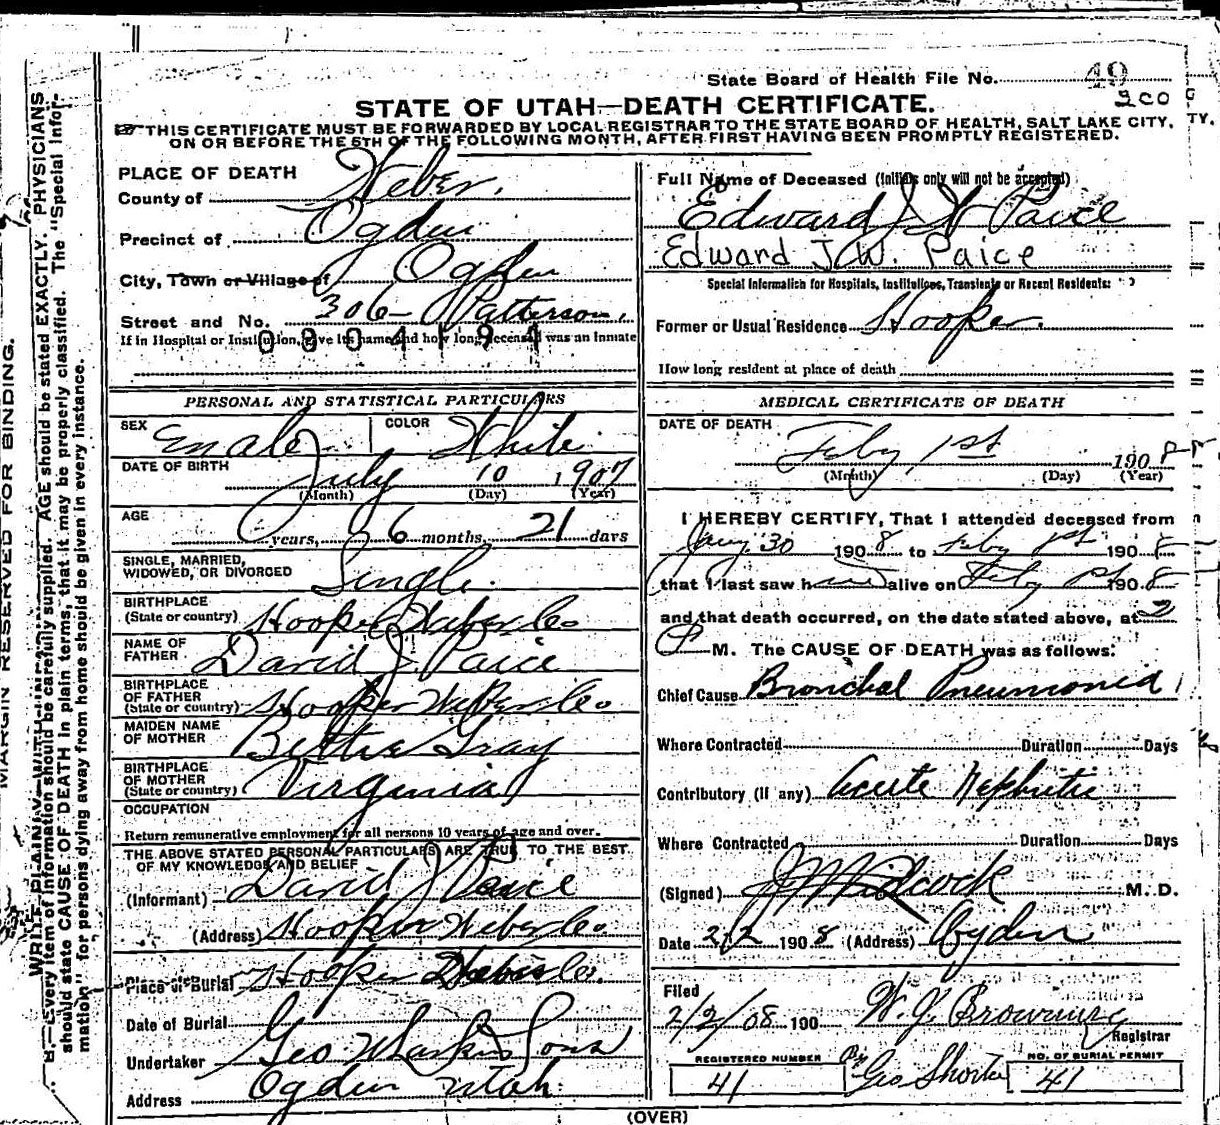 State Board of Health File No. 49
200
STATE OF UTAH—DEATH CERTIFICATE.
THIS CERTIFICATE MUST BE FORWARDED BY LOCAL REGISTRAR TO THE STATE BOARD OF HEALTH, SALT LAKE CITY,
ON OR BEFORE THE 5TH OF THE FOLLOWING MONTH, AFTER FIRST HAVING BEEN PROMPTLY REGISTERED.
PLACE OF DEATH
County of Weber.
Precinct of Ogden
City, Town or Village of Ogden
Street and No. 306 Patterson.
If in Hospital or Institution, give its name and how long deceased was an inmate
Full Name of Deceased (Initials only will not be accepted)
Edward J W Paice
Edward J.W. Paice
Special Information for Hospitals, Institutions, Transients or Recent Residents:
Former or Usual Residence Hooper.
How long resident at place of death
PERSONAL AND STATISTICAL PARTICULARS
SEX Male COLOR White
DATE OF BIRTH July 10 1907
(Month) (Day) (Year)
AGE years, 6 months, 21 days
SINGLE, MARRIED,
WIDOWED, OR DIVORCED Single.
BIRTHPLACE
(State or country) Hooper Weber Co
NAME OF
FATHER David J Paice
BIRTHPLACE
OF FATHER
(State or country) Hooper Weber Co
MAIDEN NAME
OF MOTHER Gray
BIRTHPLACE
OF MOTHER
(State or country) Virginia
OCCUPATION
Return remunerative employment for all persons 10 years of age and over.
THE ABOVE STATED PERSONAL PARTICULARS ARE TRUE TO THE BEST
OF MY KNOWLEDGE AND BELIEF
(Informant) David J Paice
(Address) Hooper Weber Co
Place of Burial Hooper Weber Co.
Date of Burial
Undertaker Geo Sons
Address Ogden Utah
MEDICAL CERTIFICATE OF DEATH
DATE OF DEATH
Feby 1st 1908
(Month) (Day) (Year)
I HEREBY CERTIFY, That I attended deceased from
Jany 30 1908 to Feby 1st 1908
that I last saw h alive on Feby 1st 1908
and that death occurred, on the date stated above, at 2
P M. The CAUSE OF DEATH was as follows:
Chief Cause Bronchal Pneumonia
Where Contracted Duration Days
Contributory (if any) Acute Nephritis
Where Contracted Duration Days
(Signed) M. D.
Date 2/2 1908 (Address) Ogden
Filed
2/2/08 190 W. J. Browning
Registrar
REGISTERED NUMBER
41
Geo Shorten
NO. OF BURIAL PERMIT
41
(OVER)
MARGIN RESERVED FOR BINDING.
B.—Every item of information should be carefully supplied. AGE should be stated EXACTLY. PHYSICIANS
should state CAUSE OF DEATH in plain terms, that it may be properly classified. The "Special Infor-
mation" for persons dying away from home should be given in every instance.